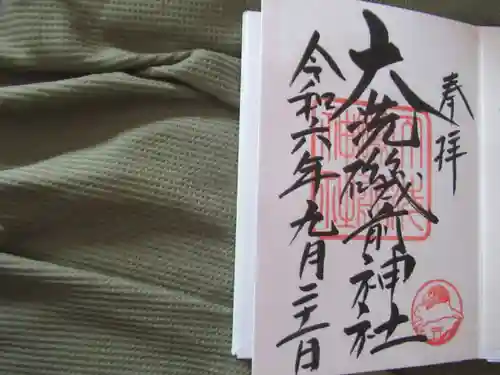 奉拝
大洗磯前神社
令和六年九月二十一日